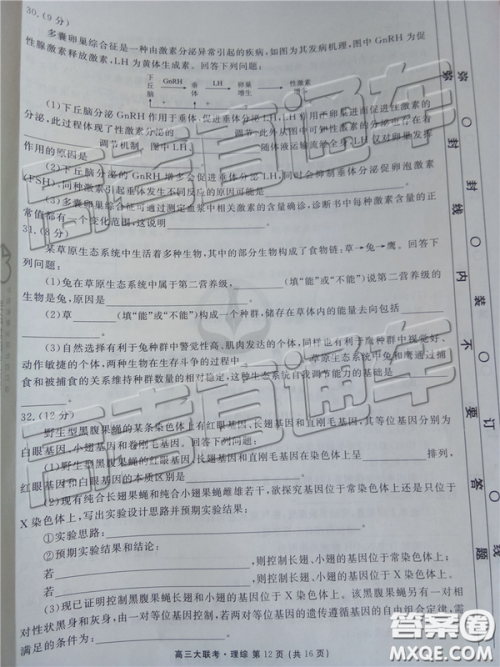 30.(9分)
多囊卵巢综合征是一种由激素分泌异常引起的疾病,如图为其发病机理,图中GnRH为促
性腺激素释放激素,LH为黄体生成素。回答下列问题:
下丘脑 GnRH 垂体 LH 卵巢增生
(1)下丘脑分泌GnRH作用于垂体,促进垂体分泌LH,
分泌,此过程体现了性激素分泌的 调节机制。图中LH
作用的原因是
(2)下丘脑分泌的GnRH能促进垂体分泌LH,同时会抑制垂体分泌促卵泡激素
(FSH),同种激素引起垂体发生不同反应的原因可能是
(3)多囊卵巢综合征可通过测定血浆中相关激素的含量确诊,诊断书中每种激素含量的正
常值都有一个变化范围,这说明
31.(8分)
某草原生态系统中生活着多种生物,其中的部分生物构成了食物链:草→兔→鹰。回答下
列问题:
(1)兔在草原生态系统中属于第二营养级, (填“能”或“不能”)说第二营养级的
生物是兔,原因是 。
(2)草 (填“能”或“不能”)构成一个种群,储存在草体内的能量去向包括
(3)自然选择有利于兔种群中警觉性高、肌肉发达的个体,同样也有利于鹰种群中视觉好、
动作敏捷的个体,两种生物在生存斗争的过程中
捕食和被捕食的关系维持种群数量的相对稳定,这种生态系统自我调节能力的基础是
32.(12分)
野生型黑腹果蝇的某条染色体上有红眼基因、长翅基因和直刚毛基因,其等位基因分别为
白眼基因、小翅基因和卷刚毛基因。回答下列问题:
(1)野生型黑腹果蝇的红眼基因、长翅基因和直刚毛基因在染色体上呈 排列,
红眼基因和白眼基因的本质区别是 。
(2)现有纯合长翅果蝇和纯合小翅果蝇雌雄若干,欲探究基因位于常染色体上还是只位于
X染色体上,写出实验设计思路并预期实验结果。
①实验思路:
②预期实验结果和结论:
若 ,则控制长翅、小翅的基因位于常染色体上;
若 ,则控制长翅、小翅的基因位于X染色体上。
(3)现已证明控制黑腹果蝇长翅和小翅的基因位于X染色体上。该黑腹果蝇另有一对相
对性状黑身和灰身,由一对等位基因控制,若两对等位基因的遗传遵循基因的自由组合定律,需
满足的条件为:
高三大联考·理综 第12页(共16页)
弥 封 线 内 不 要 答 题
装 订 线
高考直通车
高考直通车
高考直通车
答案圈
MXQE.COM